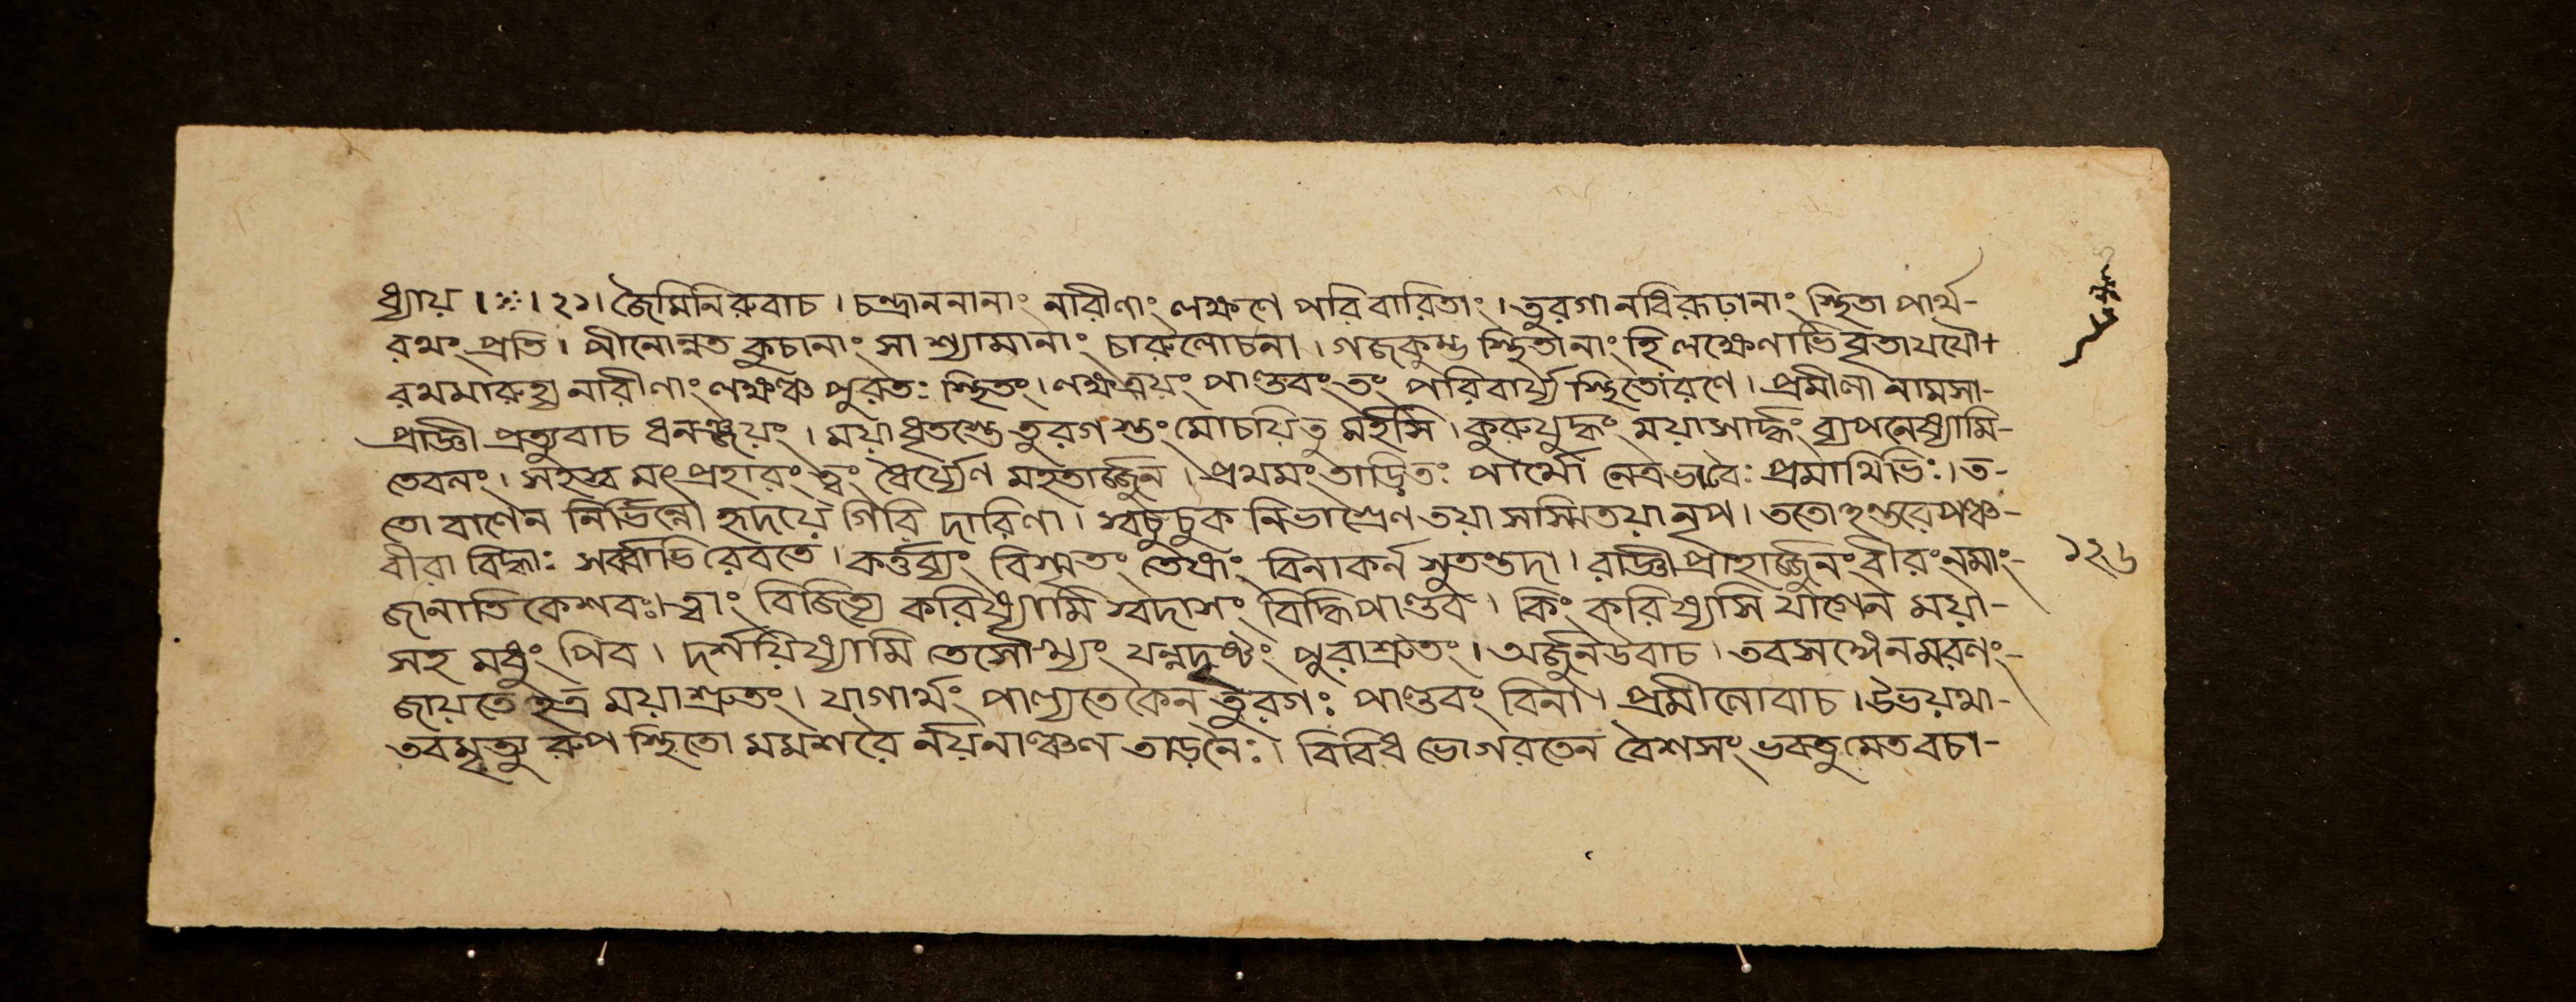 ধ্যায় ।ঃ। ২১। জৈমিনিরুবাচ । চন্দ্রাননানাং নারীণাং লক্ষণে পরিবারিতাং । তুরগানবিরূঢানাং স্থিতা পার্থ-
রথং প্রতি । পীনোন্নত কুচানাং সা শ্যামানাং চারুলোচনা । গজকুম্ভ স্থিতানাং হি লক্ষেণাভিবৃতাযযৌ+
রথমারুহ্য নারীণাং লক্ষঞ্চ পুরতঃ স্থিতং । লক্ষত্রয়ং পাণ্ডবং তং পরিবার্য্য স্থিতোরণে । প্রমীলা নামসা-
প্রাজ্ঞী প্রত্যুবাচ ধনঞ্জয়ং । ময়া ধৃতস্তে তুরগ স্তং মোচয়িতু মর্হসি । কুরুযুদ্ধং ময়াসার্দ্ধং ব্যপনেষ্যামি-
তেবলং । সহস্ব মৎ প্রহারং ত্বং ধৈর্য্যেণ মহতার্জ্জুন । প্রথমং তাড়িতঃ পার্থো নেত্রভাবৈঃ প্রমাথিভিঃ । ত-
তো বাণেন নির্ভিন্নো হৃদয়ে গিরি দারিণা । স্বচুচুক নিভাগ্রেণ তয়া সস্মিতয়া নৃপ । ততোহন্তরেপঞ্চ-
বীরা বিদ্ধাঃ সর্ব্বাভি রেবতে । কর্ত্তব্যং বিস্মৃতং তেষাং বিনাকর্ন সুতন্তদা । রাজ্ঞীপ্রাহার্জ্জুনং বীরং নমাং-
জানাতি কেশবঃ । ত্বাং বিজিত্য করিষ্যামি স্বদাসং বিদ্ধিপাণ্ডব । কিং করিষ্যসি যাগেন ময়া-
সহ মধুং পিব । দর্শয়িষ্যামি তেসৌখ্যং যন্নদৃষ্টং পুরাশ্রুতং । অর্জুনউবাচ । তবসঙ্গেনমরণং-
জায়তেহত্র ময়াশ্রুতং । যাগার্থং পাল্যতেকেন তুরগঃ পাণ্ডবং বিনা । প্রমীলোবাচ । উভয়থা-
তবমৃত্যু রুপ স্থিতো মমশরৈ র্নয়নাঞ্চল তাড়নৈঃ । বিবিধ ভোগরতেন বৈশসং ভবতু মেতবচা-
১২৬